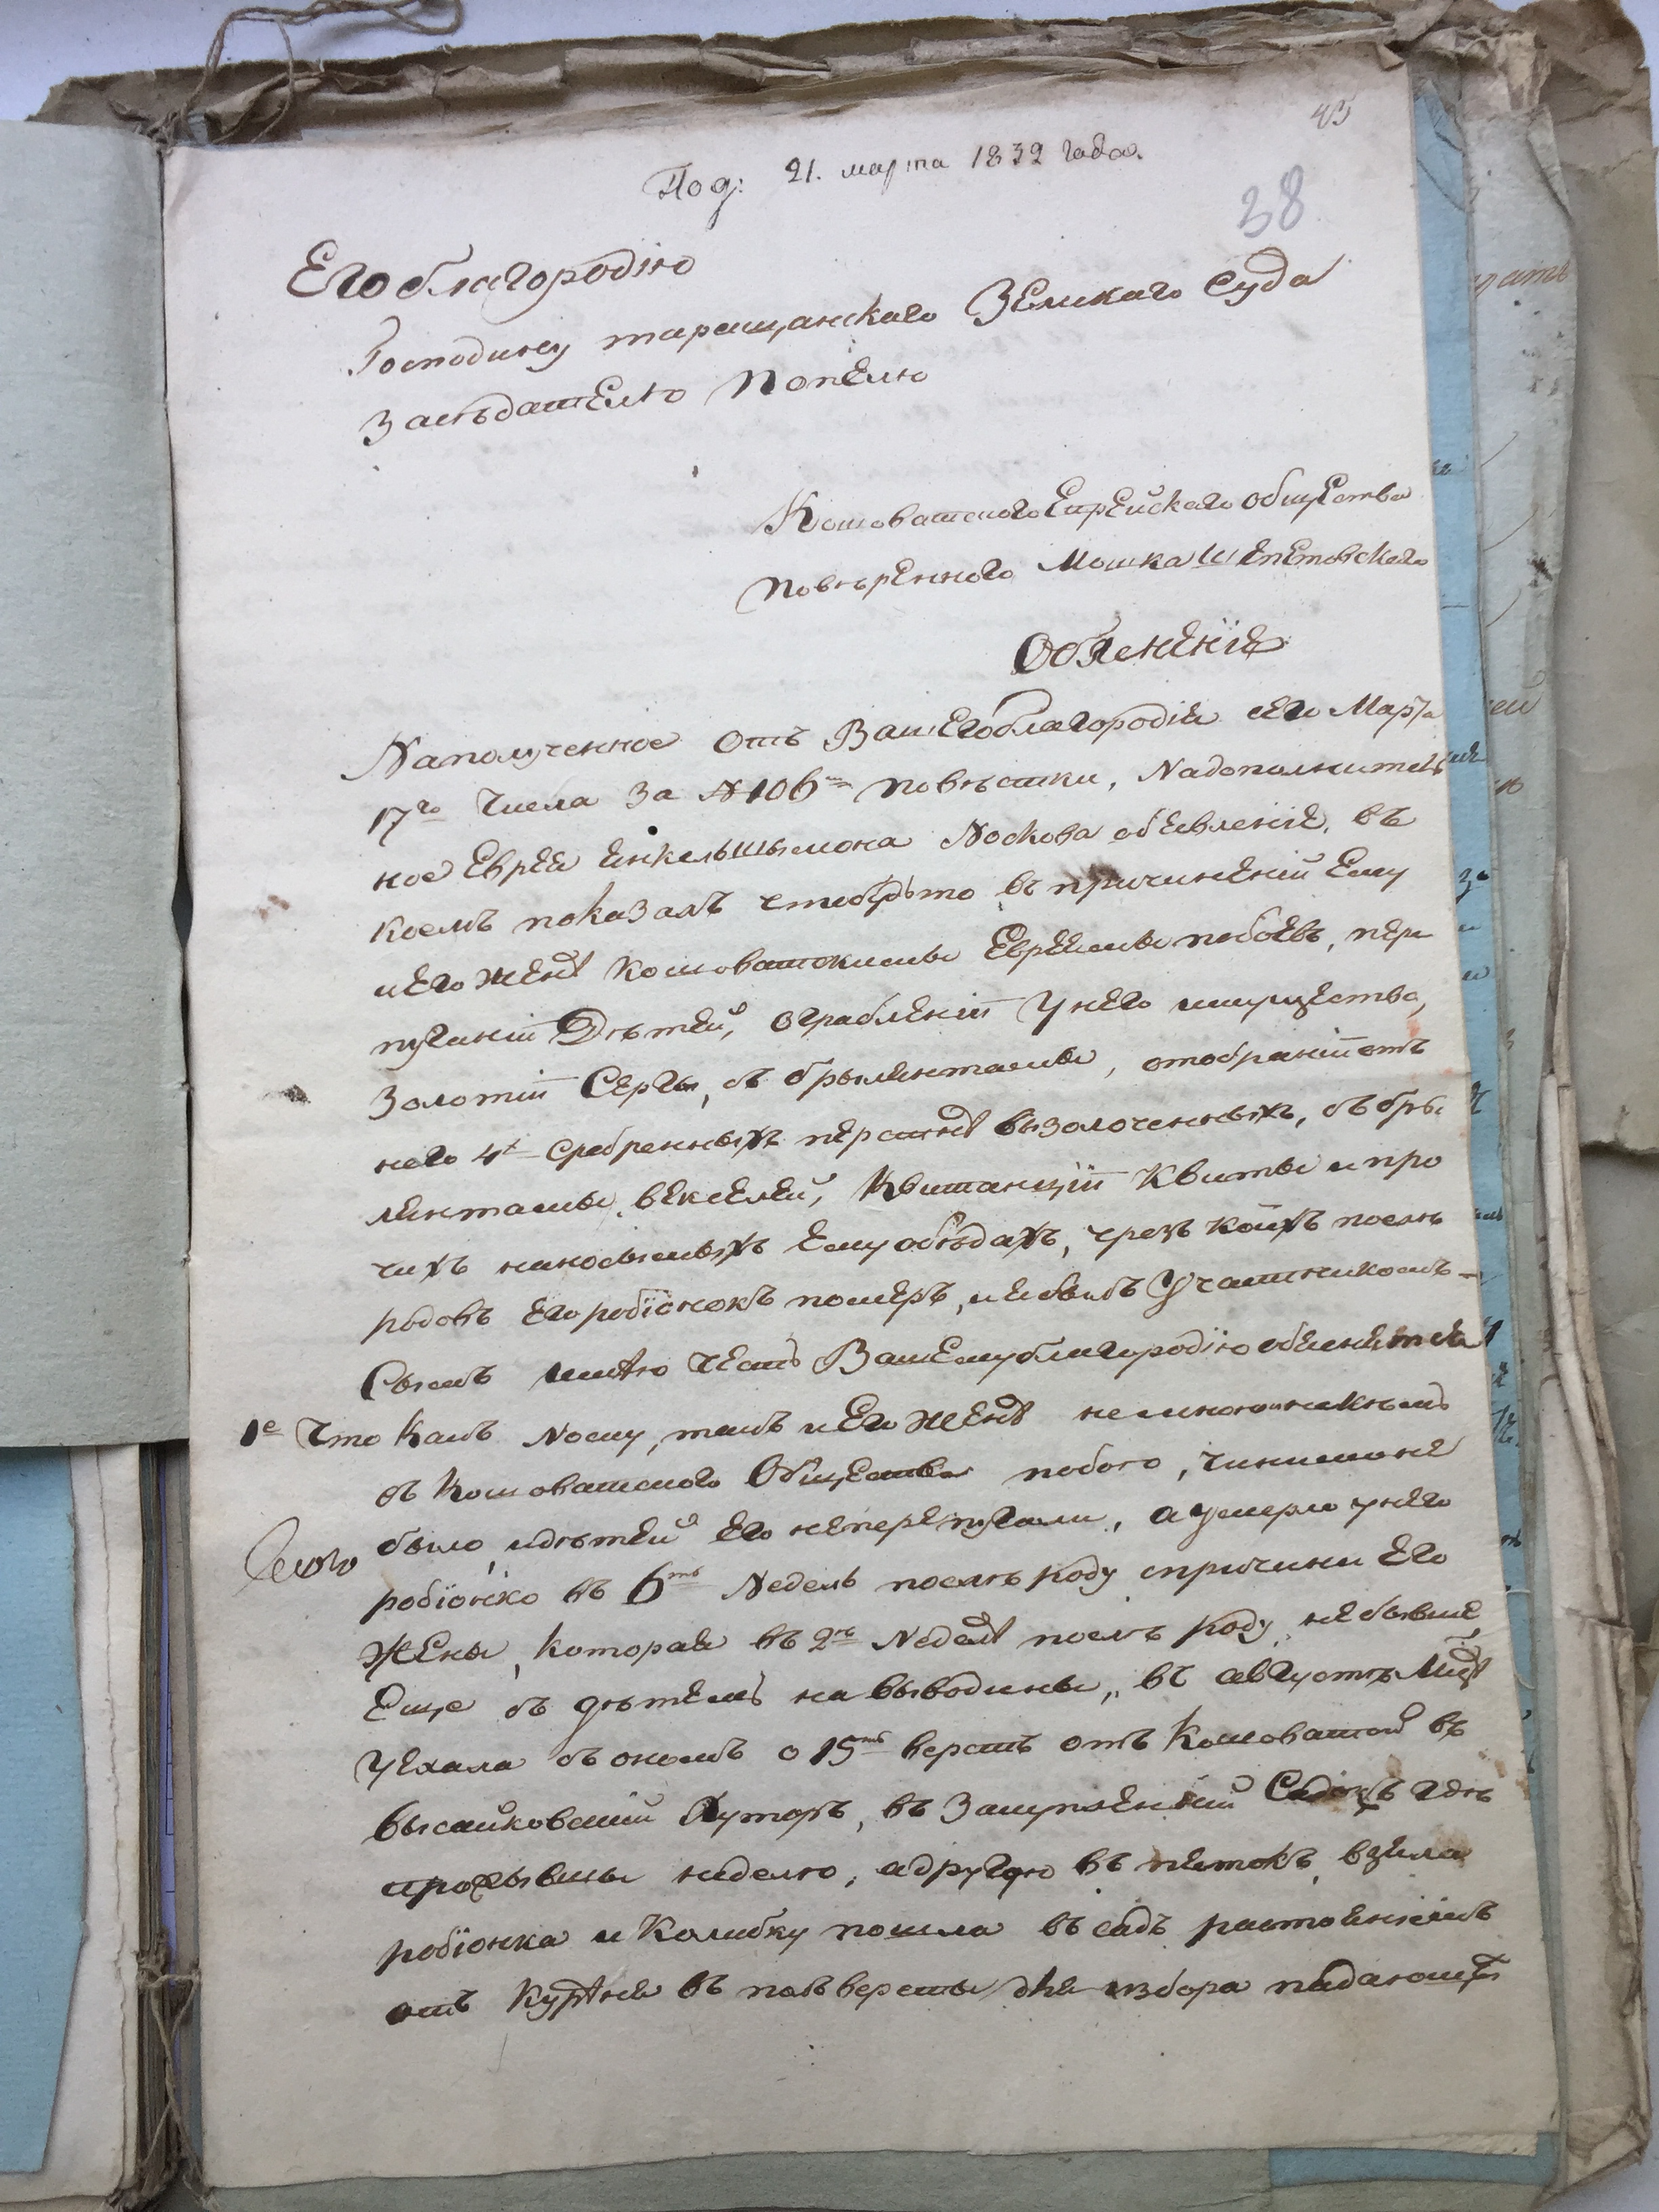 43
Под: 21. марта 1832 года.
38
Его благородію
Господину таращанскаго Земскаго Суда
Засѣдателю Попелю
Кошоватского Еврейского общества
Повѣренного Мошка Шепетовского
Обясненіе
На полученное отъ Вашего благородія сего Марта
17го числа за №106м повѣстки, На дополнитель
ное Еврея Янкель Шымона Носкова обявленіе, въ
коемъ показалъ что будьто въ причиненій Ему
и Его жене Кошоватскимы Евреямы побоевъ, пере
пуганій Дѣтей, ограбленій У него имущества,
Золотій Серги, съ брылянтамы, отобраній отъ
него 4х сребренныхъ перстне вызолоченныхъ, съ бры
лянтамы, векселей, Квитанцій Квиты и про
чихъ наносымыхъ Ему обыдахъ, чрезъ койхъ послѣ
родовъ Его робіонокъ померъ, и я былъ Участникомъ –
Сымъ имѣю честь Вашему благородію обяснится
1е Что какъ Носку, такъ и Его жене не мною и никѣмъ
съ Кошоватского Общества побою, чинимоне
было, и дѣтей Его не перепугали, а умерло у него
робіонко въ 6ть Недель послѣ роду спричини Его
Жены, которая въ 2ѣ Неделе послѣ роду, не бывше
Еще съ дѣтемъ на выводины, въ августѣ Мце
Уехала съ онымъ о 15ть верстъ отъ Кошоватой въ
высайковский Хуторъ, въ Закупленный Садокъ где
прожывшы неделю, а другую въ пятокъ, взяла
робіонка и Колибку пошла въ садъ растояніемъ
отъ Куреня въ пол версты для избора падающих